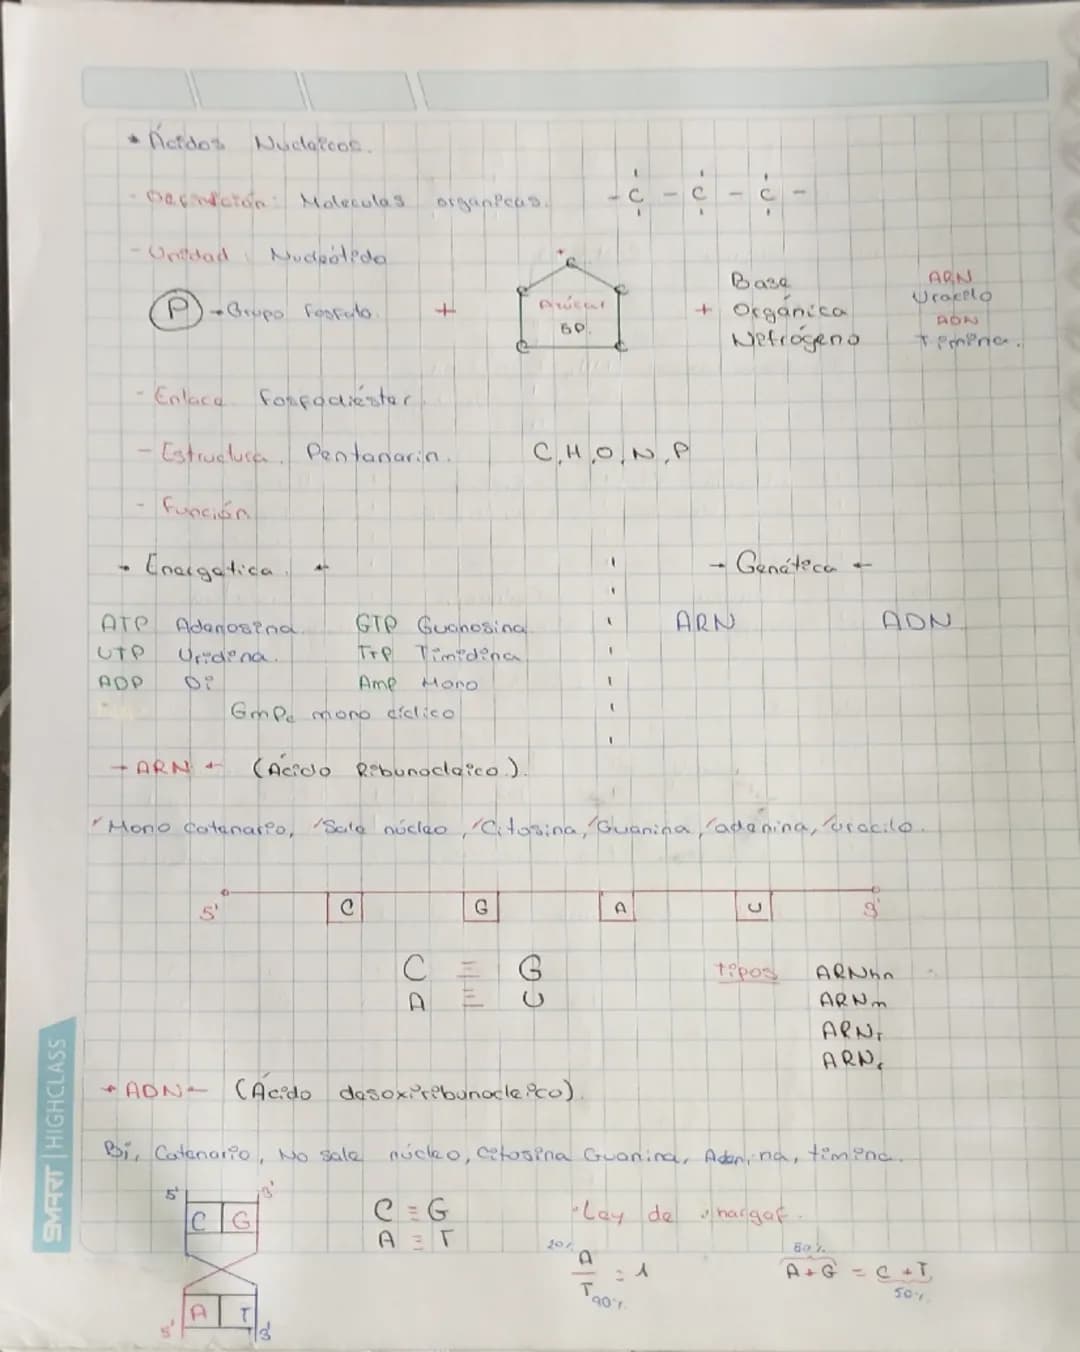 * Ácidos Nucleicos.
- Definición: Moleculas organicas. - C - C - C -
- Unidad Nucleótido
P → Grupo fosfato + Azúcar 5P. + Base Orgánica Nitrógeno
ARN
Uracilo
ADN
Timina.
- Enlace fosfodiéster
- Estructura. Pentanarin. C, H, O, N, P
- función
→ Energetica. ← → Genética ←
ATP Adenosina. GTP Guanosina ARN ADN
UTP Uridina. TTP Timidina
ADP Di AMP Mono
GmPc mono ciclico
→ ARN ← (Ácido Ribunocleico).
Mono catenario, Sale núcleo, Citosina, Guanina, adenina, uracilo.
5' C G A U 3'
C ≡ G
A ≡ U
tipos ARNhn
ARNm
ARNt
ARNr
→ ADN ← (Ácido desoxiribunocleico).
Bi, Catenario, No sale núcleo, citosina Guanina, Adenina, timina.
5' 3'
C G
A T
5' 3'
C ≡ G
A ≡ T
Ley de hargaf.
20% A / T 90% = 1
50% A + G = C + T 50%
SMART | HIGHCLASS